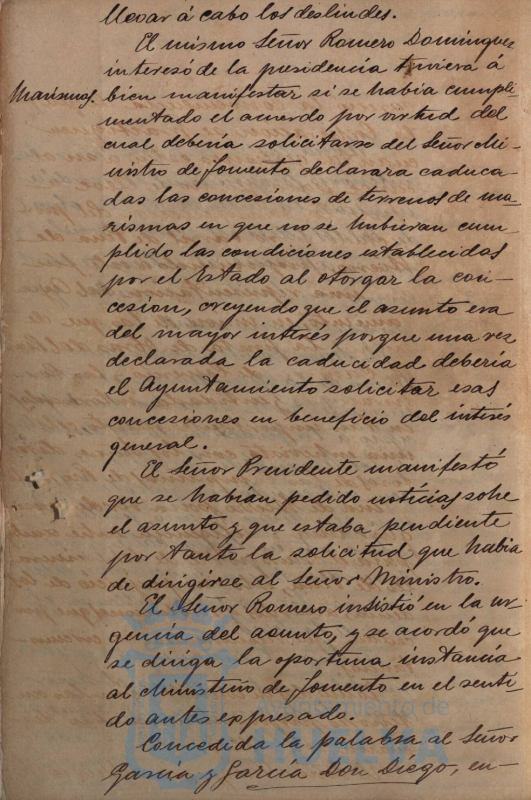 llevar á cabo los deslindes.
El mismo Señor Romero Dominguez
interesó de la presidencia tuviera á
Marismas. bien manifestar si se habia cumpli-
mentado el acuerdo por virtud del
cual debería solicitarse del Señor Mi-
nistro de Fomento declarara caduca-
das las concesiones de terrenos de ma-
rismas en que no se hubieran cum-
plido las condiciones establecidas
por el Estado al otorgar la con-
cesion, creyendo que el asunto era
del mayor interés porque una vez
declarada la caducidad debería
el Ayuntamiento solicitar esas
concesiones en beneficio del interés
general.
El Señor Presidente manifestó
que se habían pedido noticias sobre
el asunto y que estaba pendiente
por tanto la solicitud que habia
de dirigirse al Señor Ministro.
El Señor Romero insistió en la ur-
gencia del asunto, y se acordó que
se dirija la oportuna instancia
al Ministerio de Fomento en el senti-
do antes expresado.
Concedida la palabra al Señor
García y García Don Diego, en-
Ayuntamiento de
HUELVA